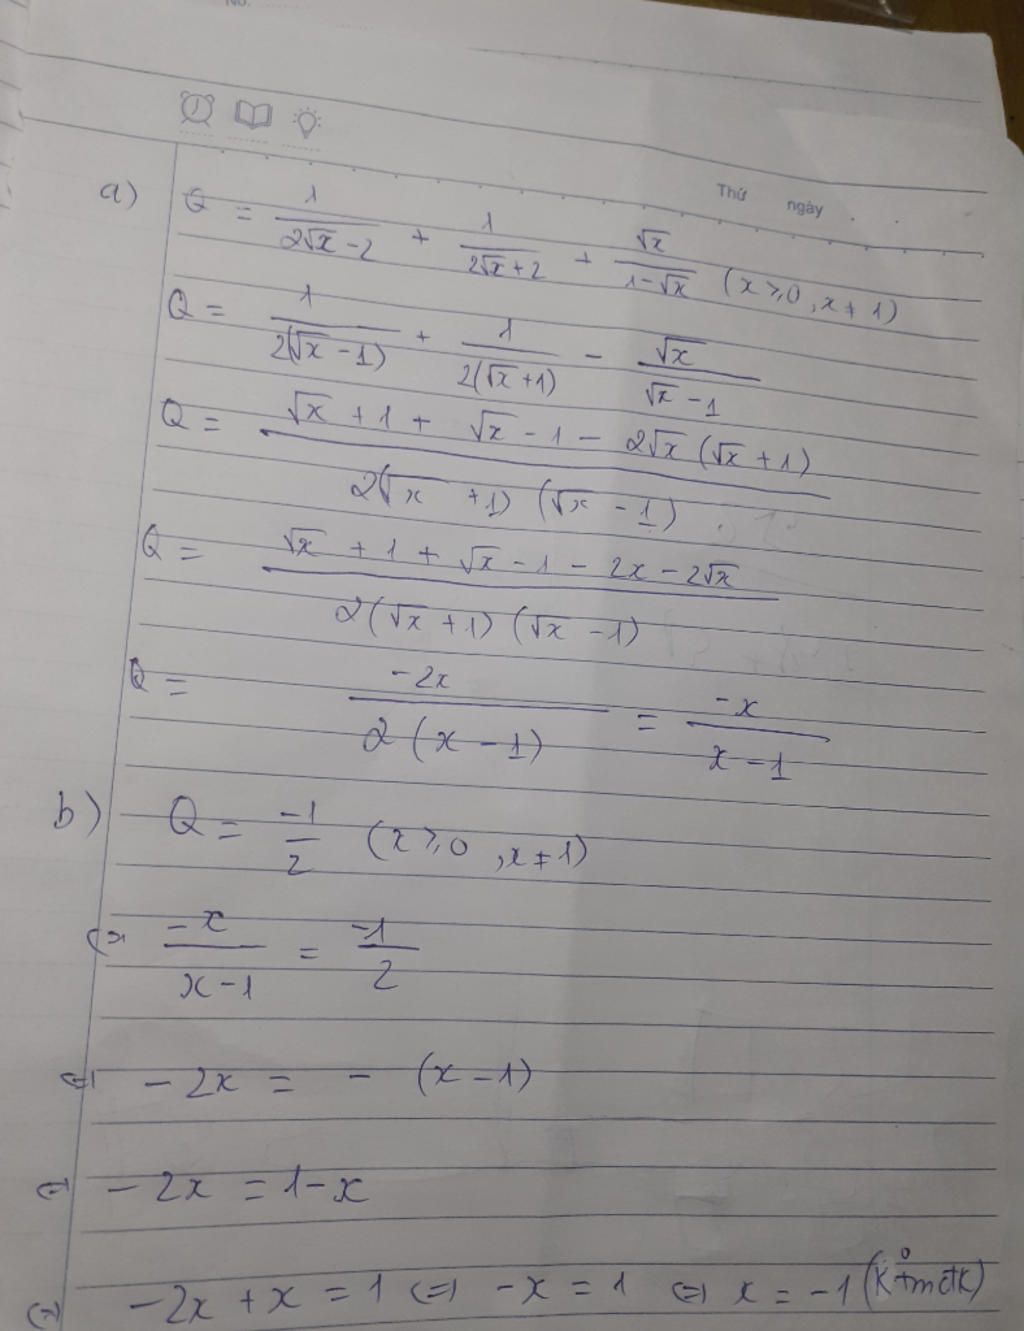 No.
Thứ ngày
a) Q = 1/(2√x - 2) + 1/(2√x + 2) + √x/(1 - √x) (x ≥ 0, x ≠ 1)
Q = 1/(2(√x - 1)) + 1/(2(√x + 1)) - √x/(√x - 1)
Q = (√x + 1 + √x - 1 - 2√x(√x + 1))/(2(√x + 1)(√x - 1))
Q = (√x + 1 + √x - 1 - 2x - 2√x)/(2(√x + 1)(√x - 1))
Q = -2x/(2(x - 1)) = -x/(x - 1)
b) Q = -1/2 (x ≥ 0, x ≠ 1)
⇔ -x/(x - 1) = -1/2
⇔ -2x = - (x - 1)
⇔ -2x = 1 - x
⇔ -2x + x = 1 ⇔ -x = 1 ⇔ x = -1 (K° tmđk)